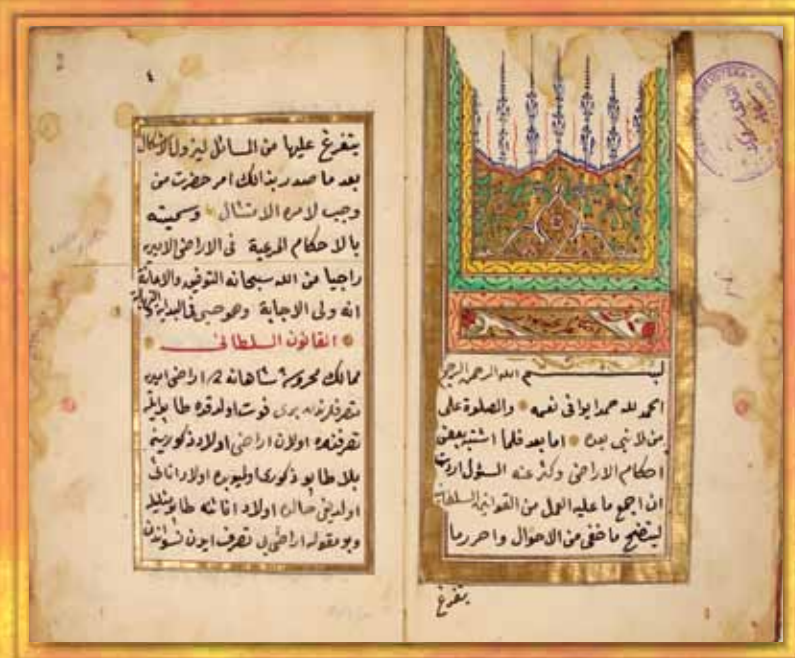 بسم الله الرحمن الرحيم
الحمد لله حمدا يوافى نعمه والصلوة على
من لا نبى بعده اما بعد فلما اشتبه بعض
احكام الاراضى وكثر عنه السؤل اردت
ان اجمع ما عليه العمل من القوانين السلطانيه
ليتضح ما خفى من الاحوال واحرر ما
يتفرغ
٤
يتفرغ عليها من المسائل ليزول الاشكال
بعد ما صدر بذالك امر حضرت من
وجب لامره الامتثال وسميته
بالاحكام المرعية فى الاراضى الاميريه
راجيا من الله سبحانه التوفيق والاعانة
انه ولى الاجابة وهو حسبى فى البداية
القانون السلطانى
ممالك محروسه شاهانه ده اراضى اميريه
متصرفلرندن برى فوت اولدقده طابو ايله
تصرفنده اولان اراضى اولاد ذكورينه
بلا طابو ذكورى اوليوب اولاد اناثى
اولديغى حالده اولاد اناثنه طابو مثليله
وبو مقوله اراضى بى تصرف ايدن نسواندن